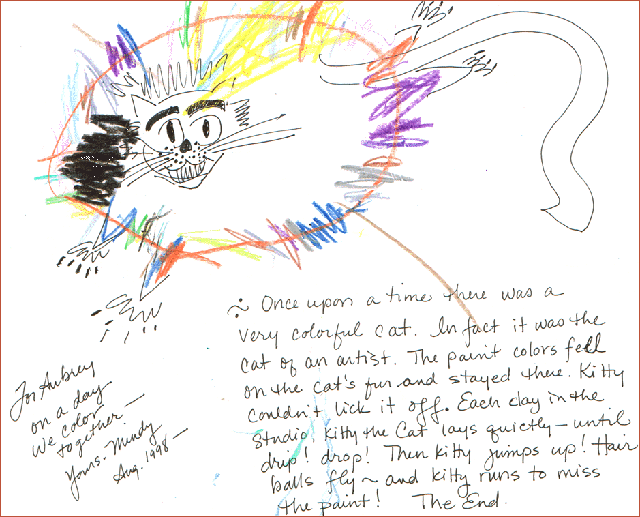 Once upon a time there was a
very colorful cat. In fact it was the
cat of an artist. The paint colors fell
on the cat's fur and stayed there. Kitty
couldn't lick it off. Each day in the
studio Kitty the Cat lays quietly — until
drip! drop! Then Kitty jumps up! Hair
balls fly ~ and Kitty runs to miss
the paint! The End.
For Aubrey
on a day
we color
together —
Yours - Mindy
Aug. 1998 —